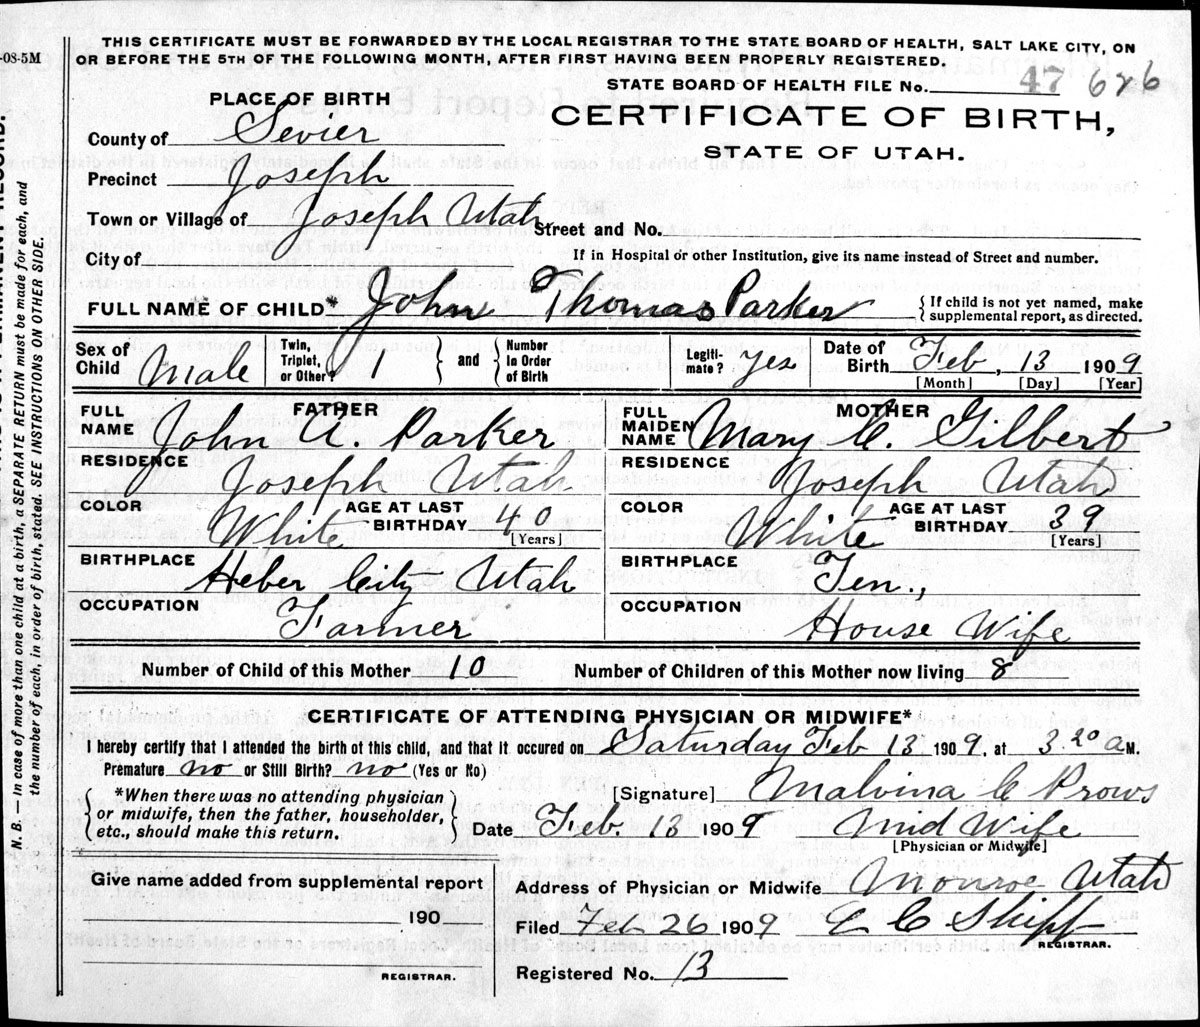 -08-5M
THIS CERTIFICATE MUST BE FORWARDED BY THE LOCAL REGISTRAR TO THE STATE BOARD OF HEALTH, SALT LAKE CITY, ON
OR BEFORE THE 5TH OF THE FOLLOWING MONTH, AFTER FIRST HAVING BEEN PROPERLY REGISTERED.
STATE BOARD OF HEALTH FILE No. 47 626
PLACE OF BIRTH
CERTIFICATE OF BIRTH,
STATE OF UTAH.
County of Sevier
Precinct Joseph
Town or Village of Joseph Utah Street and No.
City of If in Hospital or other Institution, give its name instead of Street and number.
FULL NAME OF CHILD* John Thomas Parker { If child is not yet named, make supplemental report, as directed.
Sex of Child Male Twin, Triplet, or Other? 1 } and { Number in Order of Birth Legitimate? yes Date of Birth Feb, 13 1909
[Month] [Day] [Year]
FATHER
FULL NAME John A. Parker
RESIDENCE Joseph Utah
COLOR White AGE AT LAST BIRTHDAY 40 [Years]
BIRTHPLACE Heber City Utah
OCCUPATION Farmer
MOTHER
FULL MAIDEN NAME Mary C. Gilbert
RESIDENCE Joseph Utah
COLOR White AGE AT LAST BIRTHDAY 39 [Years]
BIRTHPLACE Ten.,
OCCUPATION House Wife
Number of Child of this Mother 10 Number of Children of this Mother now living 8
CERTIFICATE OF ATTENDING PHYSICIAN OR MIDWIFE*
I hereby certify that I attended the birth of this child, and that it occured on Saturday Feb 13 1909, at 3.20 a M.
Premature no or Still Birth? no (Yes or No)
{ *When there was no attending physician or midwife, then the father, householder, etc., should make this return. }
[Signature] Malvina C Prows
Date Feb. 13 1909 Mid Wife
[Physician or Midwife]
Give name added from supplemental report
190
REGISTRAR.
Address of Physician or Midwife Monroe Utah
Filed Feb 26 1909 E C Shipp
REGISTRAR.
Registered No. 13
N. B. — In case of more than one child at a birth, a SEPARATE RETURN must be made for each, and
the number of each, in order of birth, stated. SEE INSTRUCTIONS ON OTHER SIDE.